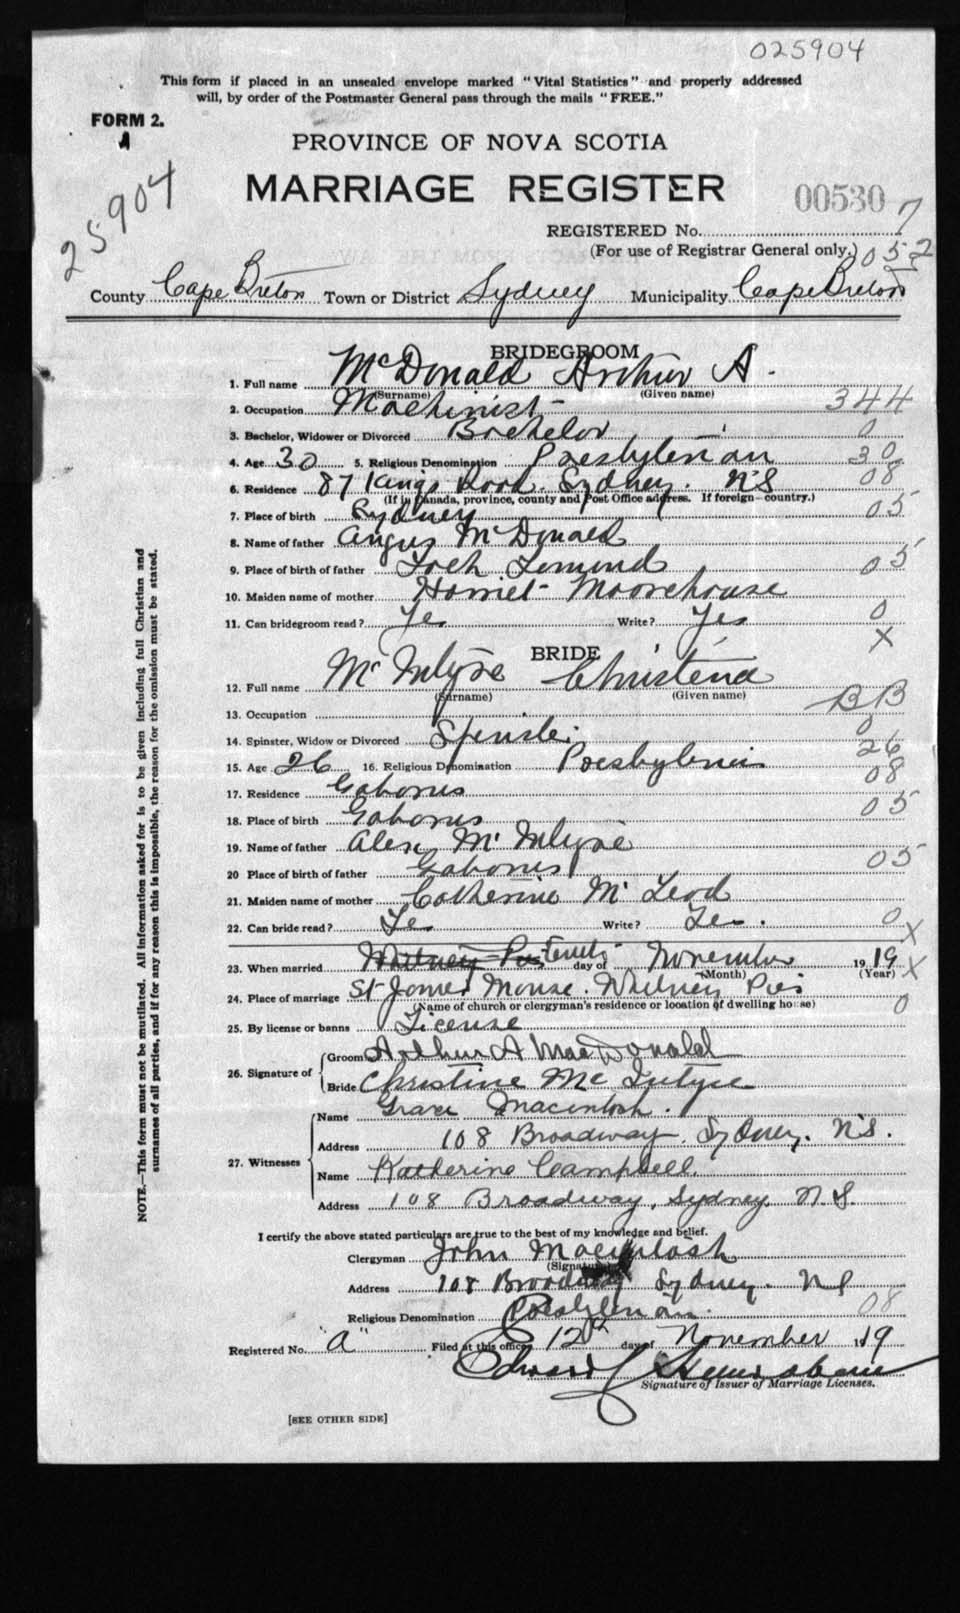 025904
This form if placed in an unsealed envelope marked "Vital Statistics" and properly addressed
will, by order of the Postmaster General pass through the mails "FREE."
FORM 2.
PROVINCE OF NOVA SCOTIA
MARRIAGE REGISTER
25904
00530
REGISTERED No. 7
(For use of Registrar General only.) 052
County Cape Breton Town or District Sydney Municipality Cape Breton
BRIDEGROOM
1. Full name McDonald Arthur A.
(Surname) (Given name)
2. Occupation Machinist 344
3. Bachelor, Widower or Divorced Bachelor 0
4. Age 30 5. Religious Denomination Presbyterian 30
6. Residence 87 Kings Road. Sydney. N S 08
(If in Canada, province, county and Post Office address. If foreign—country.)
7. Place of birth Sydney 05
8. Name of father Angus McDonald
9. Place of birth of father Loch Lomond 05
10. Maiden name of mother Harriet Moorehouse
11. Can bridegroom read? Yes Write? Yes 0
X
BRIDE
12. Full name Mc Intyre Christena
(Surname) (Given name)
13. Occupation BB
14. Spinster, Widow or Divorced Spinster 0
15. Age 26 16. Religious Denomination Presbyterian 26
17. Residence Gabarus 08
18. Place of birth Gabarus 05
19. Name of father Alex Mc Intyre
20 Place of birth of father Gabarus 05
21. Maiden name of mother Catherine Mc Leod
22. Can bride read? Yes Write? Yes. 0
X
23. When married Whitney Pier Tenth day of November 1919 X
(Month) (Year)
24. Place of marriage St James Manse. Whitney Pier 0
(Name of church or clergyman's residence or location of dwelling house)
25. By license or banns License
26. Signature of Groom Arthur A MacDonald
Bride Christine Mc Intyre
27. Witnesses Name Grace Macintosh.
Address 108 Broadway. Sydney. N.S.
Name Katherine Campbell
Address 108 Broadway, Sydney, N.S.
I certify the above stated particulars are true to the best of my knowledge and belief.
Clergyman John Macintosh
(Signature)
Address 108 Broadway Sydney. N S
Religious Denomination Presbyterian. 08
Registered No. "a" Filed at this office 12th day of November 1919
Edward
Signature of Issuer of Marriage Licenses.
[SEE OTHER SIDE]
NOTE.—This form must not be mutilated. All information asked for is to be given including full Christian and
surnames of all parties, and if for any reason this is impossible, the reason for the omission must be stated.